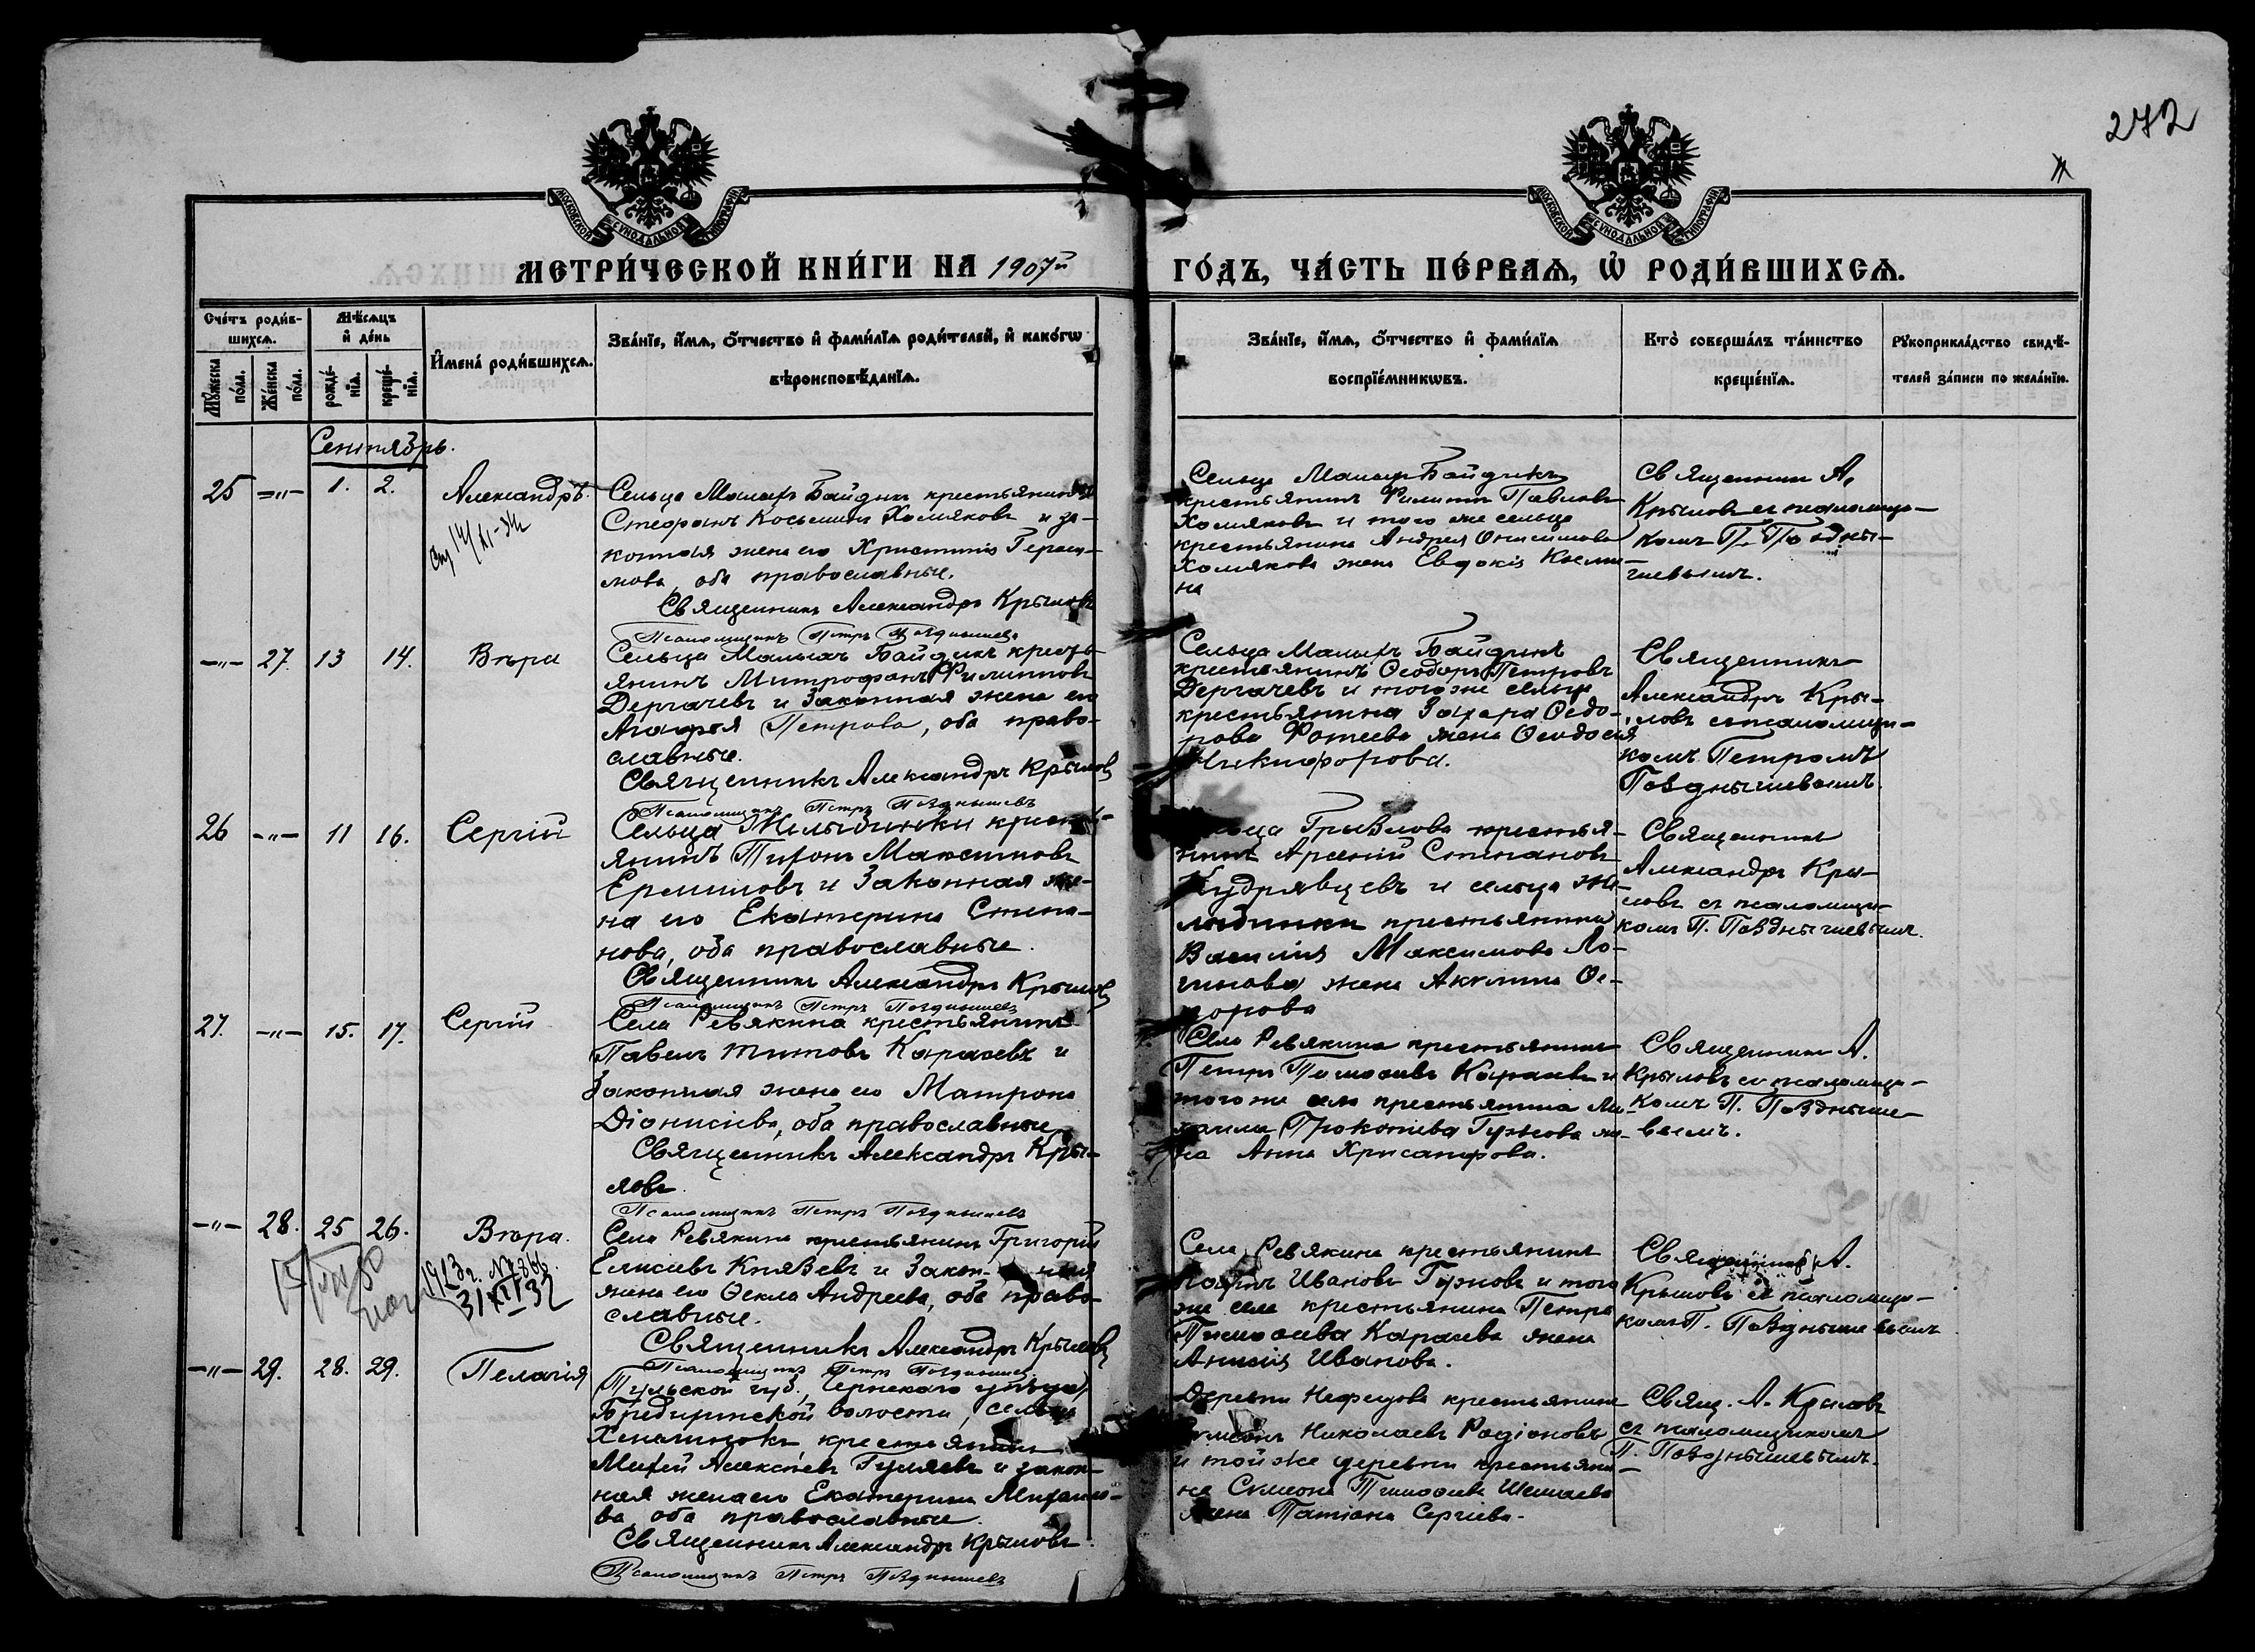 272
МОСКОВСКОЙ СУНОДАЛЬНОЙ ТИПОГРАФІИ
МОСКОВСКОЙ СУНОДАЛЬНОЙ ТИПОГРАФІИ
МЕТРИ́ЧЕСКОЙ КНИ́ГИ НА 1907й
ГО́ДЪ, ЧА́СТЬ ПЕ́РВАѦ, Ѽ РОДИ́ВШИХСѦ.
Сче́тъ роди́в-
шихсѧ.
Мѣ́сѧцъ
и҆ де́нь
Мꙋ́жеска
по́ла.
Же́нска
по́ла.
рожде́-
нїѧ.
креще́-
нїѧ.
И҆мена̀ роди́вшихсѧ.
Зва́нїе, и҆́мѧ, ѻ҆́тчество и҆ фами́лїѧ роди́телей, и҆ како́гѡ
вѣроисповѣ́данїѧ.
Зва́нїе, и҆́мѧ, ѻ҆́тчество и҆ фами́лїѧ
воспрїе́мникѡвъ.
Кто̀ соверша́лъ та́инство
креще́нїѧ.
Рꙋкоприкла́дство свидѣ́-
телей за́писи по жела́нїю.
Сентябрь.
25 —"— 1. 2.
Александръ.
Сельца Малыхъ Байдикъ крестьянинъ
Стефанъ Косьминъ Хомяковъ и за-
конная жена его Христина Гераси-
мова, оба православные.
Священникъ Александръ Крыловъ
Псаломщикъ Петръ Позднышевъ
Сельца Малыхъ Байдикъ
крестьянинъ Филиппъ Павловъ
Хомяковъ и того же сельца
крестьянина Андрея Онисимова
Хомякова жена Евдокія Косми-
на
Священникъ А.
Крыловъ съ псаломщи-
комъ П. Поздны-
шевымъ.
—"— 27. 13 14.
Вѣра
Сельца Малыхъ Байдикъ кресть-
янинъ Митрофанъ Филипповъ
Дергачевъ и законная жена его
Агафья Петрова, оба право-
славные.
Священникъ Александръ Крыловъ
Псаломщикъ Петръ Позднышевъ
Сельца Малыхъ Байдикъ
крестьянинъ Ѳеодоръ Петровъ
Дергачевъ и того же сельца
крестьянина Захара Ѳедо-
рова Фотеева жена Ѳеодосія
Никифорова.
Священникъ
Александръ Кры-
ловъ съ псаломщи-
комъ Петромъ
Позднышевымъ.
26 —"— 11 16.
Сергій
Сельца Жилыдинки кресть-
янинъ Тихонъ Максимовъ
Ермиловъ и законная же-
на его Екатерина Степа-
нова, оба православные.
Священникъ Александръ Крыловъ
Псаломщикъ Петръ Позднышевъ
Грызлова крестья-
нинъ Арсеній Степановъ
Кудрявцевъ и сельца Жи-
лыдинки крестьянина
Василія Максимова Ло-
гинова жена Акулина
Священникъ
Александръ Кры-
ловъ съ псаломщи-
комъ П. Позднышевымъ.
27. —"— 15. 17.
Сергій
Села Ревякина крестьянинъ
Павелъ Титовъ Карасевъ и
законная жена его Матрона
Діонисіева, оба православные
Священникъ Александръ Кры-
ловъ.
Псаломщикъ Петръ Позднышевъ
Села Ревякина крестьянинъ
Петръ Тимоѳеевъ Карасевъ и
того же села крестьянина Ми-
хаила Прокопіева Гужова же-
на Анна Хрисанфова.
Священникъ А.
Крыловъ съ псаломщи-
комъ П. Поздныше-
вымъ.
—"— 28. 25 26.
Вѣра.
1923г.
31/XII 32
Села Ревякина крестьянинъ Григорій
Елисеевъ Князевъ и закон- ная
жена его Ѳекла Андреева, оба право-
славные.
Священникъ Александръ Крыловъ
Псаломщикъ Петръ Позднышевъ
Села Ревякина крестьянинъ
Ивановъ Гужовъ и того
же села крестьянина Петра
Тимоѳеева Карасева жена
Анисія Иванова.
Священникъ А.
Крыловъ съ псаломщи-
комъ П. Позднышевымъ
—"— 29. 28. 29.
Пелагія
Тульской губ., Чернскаго уѣзда,
Бредихинской волости, сельца
крестьянинъ
Михей Алексѣевъ Гуляевъ и закон-
ная жена его Екатерина Михаило-
ва, оба православные.
Священникъ Александръ Крыловъ
Псаломщикъ Петръ Позднышевъ
Деревни Нефедова крестьянинъ
Николаевъ Родіоновъ
и той же деревни крестьяни-
на Симеона Тимоѳеева
жена Татіана Сергіева.
Свящ. А. Крыловъ
съ псаломщикомъ
П. Позднышевымъ.